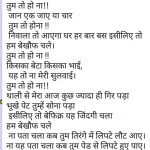 तुम तो होना !!
जान एक जाए या चार
तुम तो होना !!
निवाला तो आएगा घर हर बार बस इसीलिए तो
हम बेखौफ चले।
तुम तो होना !!
किसका बेटा किसका भाई,
यह तो ना मेरी सुलवाई।
तुम तो होना!!
थाली से मेरा आज कुछ ज्यादा ही गिर पड़ा
भूखे पेट तुम्हें सोना पड़ा
इसीलिए तो बेफिक्र यह जिंदगी चला
हम बेखौफ चले
ना पता चला कब तुम तिरंगे में लिपटे लौट आए।
ना यह पता चला कब तुम पेड़ से लिपटे हुए पाए।